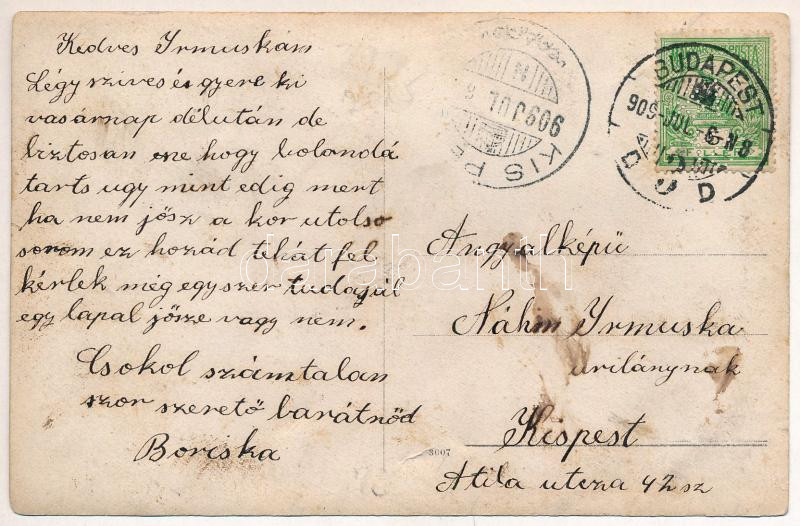 Kedves Yrmuskám
Légy szives és gyere ki
vasárnap délután de
biztosan ne hogy bolondá
tarts ugy mint edig mert
ha nem jősz a kor utolso
sorom ez hozád tehát fel
kérlek még egyszer tudajál
egy lapal jősze vagy nem.
Csokol számtalan
szor szerető barátnőd
Boriska
KISPE
909 JUL 6
BUDAPEST
909 JUL 6 N 8
darabanth
Angyalképü
Náhm Yrmuska
urilánynak
Kispest
Atila utcza 42 sz
3007